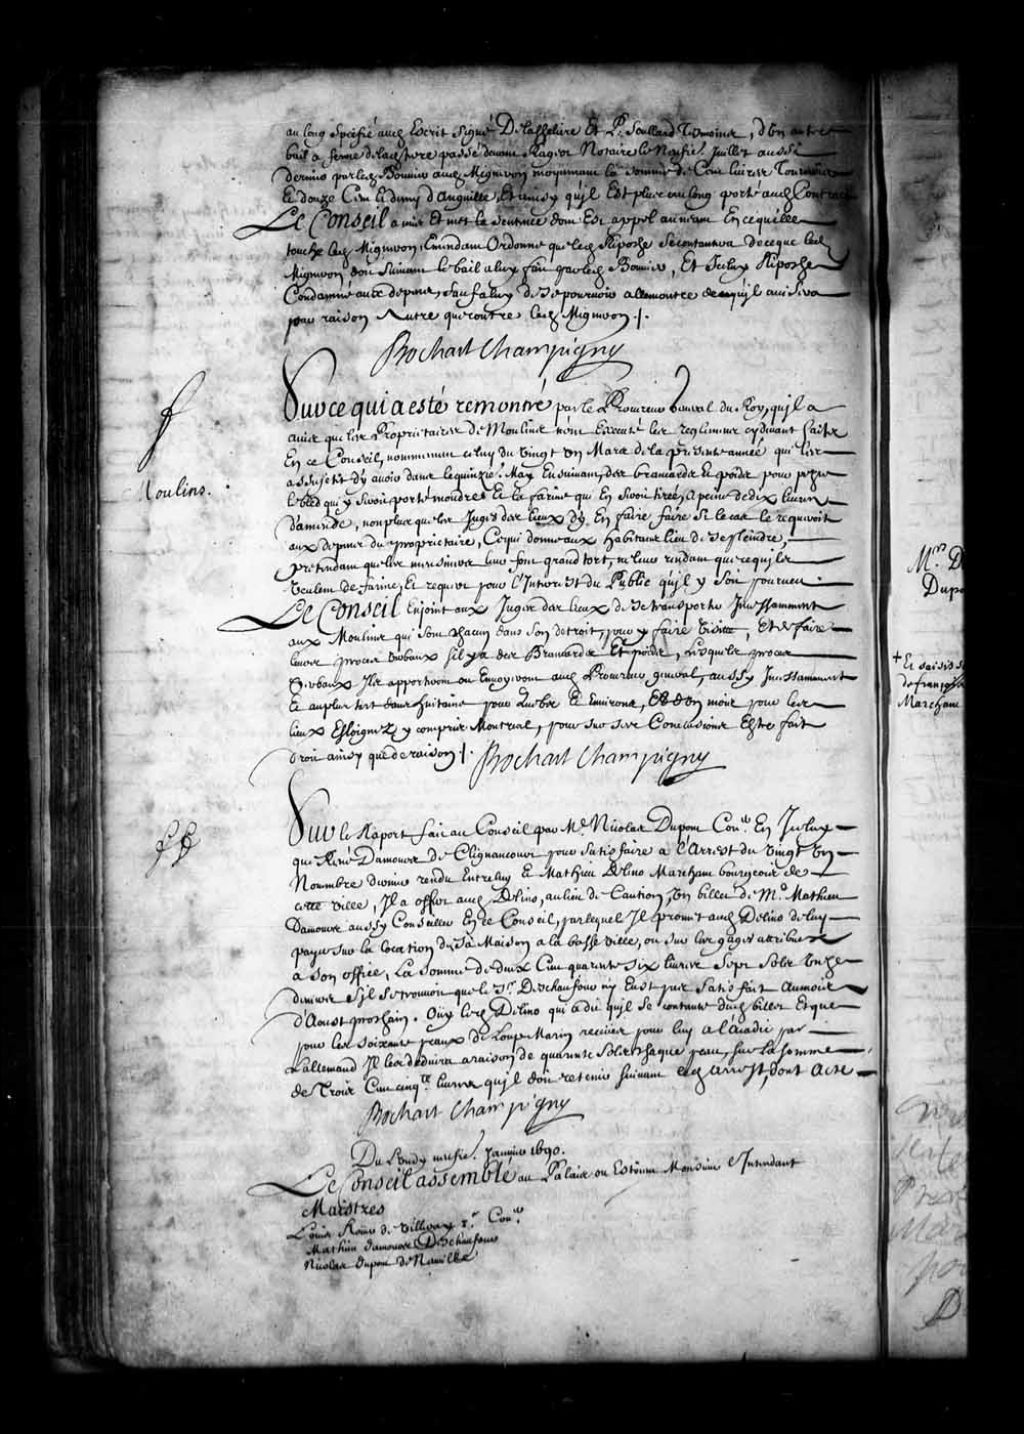 au long spécifié aud. Escrit signé Delasseliere et P. Soullard Temoins, d'un autre
bail a ferme de lad. terre passé devant Rageot Notaire le neufie. Juillet aussi
dernier par led. Bonnin aud. Migneron moyennant la somme de Cent livres Tournois
Et douze Cent Et demy d'anguille Et ainsy qu'il Est plus au long porté aud. Contract
Le Conseil a mis Et met la sentence dont Est appel au neant En ce quelle
touche led. Migneron, Emendant Ordonne que led. Riposhe se contentera de ce que led.
Migneron doit suivant le bail a luy fait par led. Bonnin, Et Iceluy Riposhe
Condamné aux depens, sauf a luy de se pourvoir allencontre de qui il avisera
pour raison Autre que contre led. Migneron ./.
Bochart Champigny
Sur ce qui a esté remontré par le Procureur General du Roy, qu'il a
avis que les Propriétaires de Moulins n'ont Executé les reglemens cy devant faits
En ce Conseil, nommement celuy du vingt un Mars de la presente année qui les
assujetit d'y avoir dans le quinzie. May Ensuivant, des bramards Et poids pour pezer
le bled qui y seroit porté moudre Et la farine qui En seroit tirée, a peine de dix livres
d'amende, non plus que les Juges des lieux d'y En faire faire Si le cas le requeroit
aux depens du proprietaire, Ce qui donne aux habitans lieu de se pleindre,
pretendant que les meusniers leur font grand tort, ne leur rendant que ce qu'ils
veulent de farine, Et requier pour l'Interest du Public qu'il y Soit pourveu.
Moulins.
Le Conseil Enjoint aux Juges des lieux de se transporter Incessamment
aux Moulins qui sont chacun dans son detroit, pour y faire visitte, Et de faire
leurs procez verbaux s'il y a des Bramards Et poids, lesquels procez
verbaux Ils apporteront ou Envoyeront aud. Procureur general, aussy Incessamment
Et au plus tard dans huitaine pour Quebec Et Environs, Et d'un mois pour les
lieux Esloignez y compris Montreal, pour sur ses Conclusions Estre fait
droit ainsy que de raison ./. Bochart Champigny
Sur le Raport fait au Conseil par Me. Nicolas Dupont Coner. En Iceluy
que René Damours de Clignancourt pour satisfaire a l'Arrest du vingt un
Novembre dernier rendu Entre luy Et Mathieu Delino Marchant bourgeois de
cette ville, Il a offert aud. Delino, au lieu de Caution, un billet de Me. Mathieu
Damours aussy Conseiller En ce Conseil, par lequel Il promet aud. Delino de luy
payer sur la location de sa Maison a la basse ville, ou sur les gages attribuez
a son office, La somme de deux Cent quarante six livres Sept Sols Onze
deniers s'il se trouvoit que le Sr. Deschaufour n'y Eust pas satisfait au mois
d'Aoust prochain. Ouy led. Delino qui a dit qu'il se contente dud. billet Et que
pour les soixante peaux de Loup Marin receues pour luy a l'Acadie par
Lallemand Il les deduira a raison de quarante Sols chaque peau, sur la somme
de Trois Cent cinqte. livres qu'il doit retenir suivant led. arrest, dont acte
Bochart Champigny
Du Lundy neufie. Janvier 1690.
Le Conseil assemblé au Palais ou Estoient Monsieur l'Intendant
Maistres
Louis Roüer de Villeray 1er. Coner.
Mathieu damours Deschaufour
Nicolas dupont de Neuville
Mrs. D
Dupo
+ Et saisis
de françois
Marchant